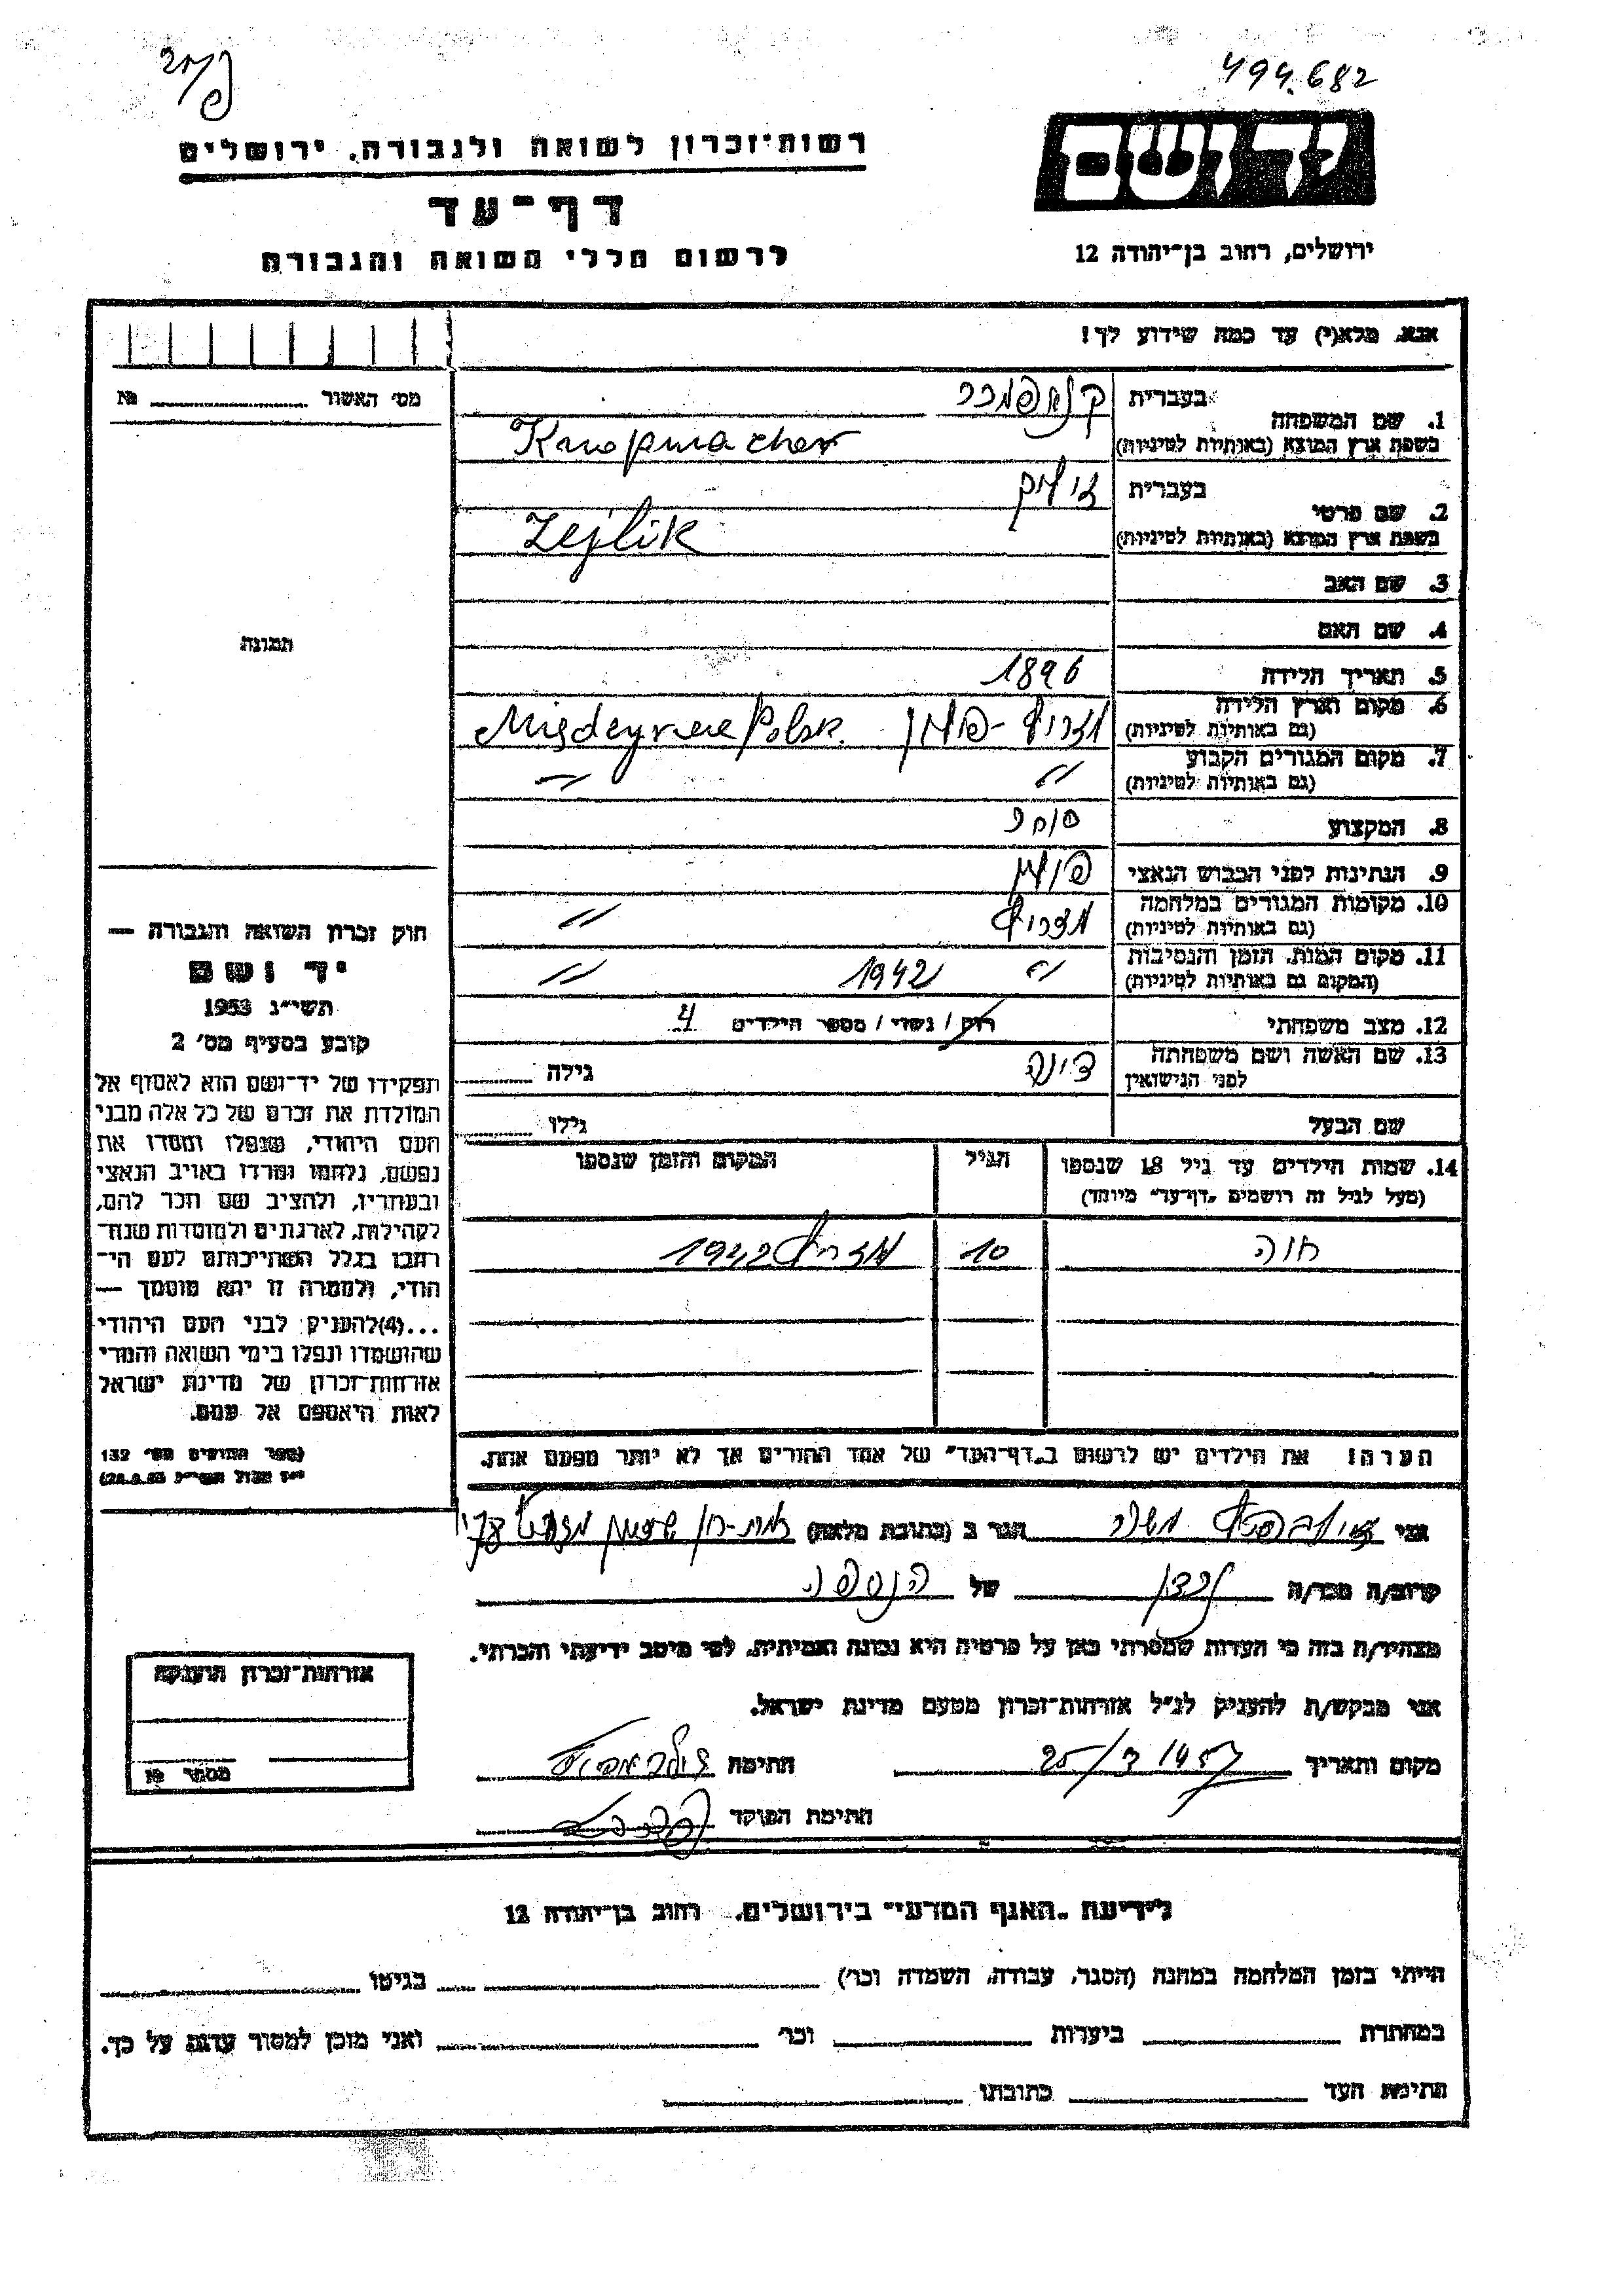 494.682
יד ושם
ירושלים, רחוב בן־יהודה 12
רשות־זכרון לשואה ולגבורה, ירושלים
דף־עד
לרשום חללי השואה והגבורה
אנא, מלא(י) עד כמה שידוע לך!
מס' האשור № 
1. שם המשפחה
בעברית קנאפמכר
בשפת ארץ המוצא (באותיות לטיניות) Knopmacher
2. שם פרטי
בעברית זיליק
בשפת ארץ המוצא (באותיות לטיניות) Zejlik
3. שם האב
4. שם האם
תמונה
5. תאריך הלידה 1896
6. מקום וארץ הלידה
(גם באותיות לטיניות) מזריץ - פולין Polsk.
7. מקום המגורים הקבוע
(גם באותיות לטיניות) " "
8. המקצוע סוחר
9. הנתינות לפני הכבוש הנאצי פולין
10. מקומות המגורים במלחמה
(גם באותיות לטיניות) מזריץ "
11. מקום המות, הזמן והנסיבות
(המקום גם באותיות לטיניות) " 1942 "
12. מצב משפחתי רוק / נשוי / מספר הילדים 4
13. שם האשה ושם משפחתה
לפני הנישואין דינה גילה
שם הבעל גילו
14. שמות הילדים עד גיל 18 שנספו הגיל המקום והזמן שנספו
(מעל לגיל זה רושמים „דף־עד" מיוחד)
חוה 10 מזריץ 1942
הערה: את הילדים יש לרשום ב„דף־העד" של אחד ההורים אך לא יותר מפעם אחת.
חוק זכרון השואה והגבורה —
יד ושם
תשי"ג 1953
קובע בסעיף מס' 2
תפקידו של יד־ושם הוא לאסוף אל
המולדת את זכרם של כל אלה מבני
העם היהודי, שנפלו ומסרו את
נפשם, נלחמו ומרדו באויב הנאצי
ובעוזריו, ולהציב שם וזכר להם,
לקהילות, לארגונים ולמוסדות שנח־
רבו בגלל השתייכותם לעם הי־
הודי, ולמטרה זו יהא מוסמך —
...(4)להעניק לבני העם היהודי
שהושמדו ונפלו בימי השואה והמרי
אזרחות־זכרון של מדינת ישראל
לאות היאספם אל עמם.
(ספר החוקים מס' 132
י"ז אלול תשי"ג 28.8.53)
אני הגר ב (כתובת מלאה)
קרוב/ה מכר/ה של הנספה
מצהיר/ה בזה כי העדות שמסרתי כאן על פרטיה היא נכונה ואמיתית, לפי מיטב ידיעתי והכרתי.
אני מבקש/ת להעניק לנ"ל אזרחות־זכרון מטעם מדינת ישראל.
מקום ותאריך חתימה
חתימת הפוקד
אזרחות־זכרון הוענקה
מספר №
לידיעת „האגף המדעי" בירושלים, רחוב בן־יהודה 12
הייתי בזמן המלחמה במחנה (הסגר, עבודה, השמדה וכו') בגיטו
במחתרת ביערות וכו' ואני מוכן למסור עדות על כך.
חתימת העד כתובתו